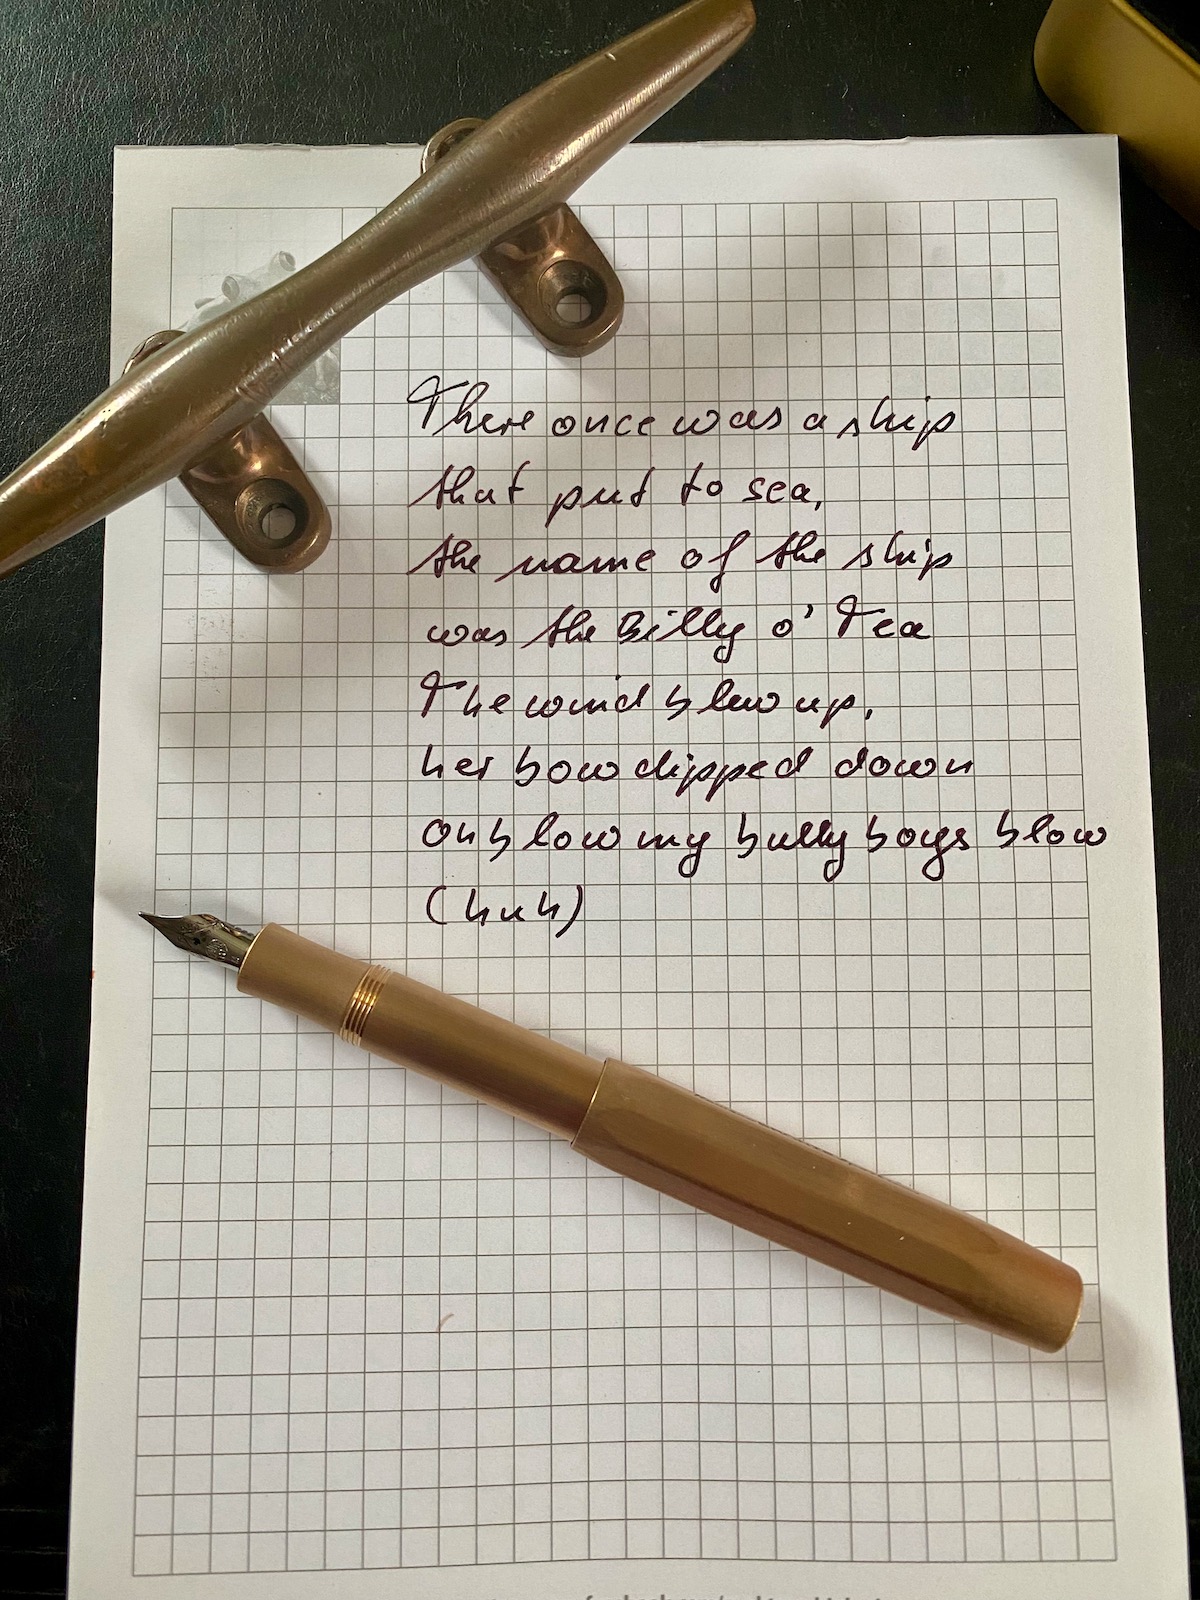 There once was a ship
that put to sea,
the name of the ship
was the Billy o' Tea
The wind blew up,
her bow dipped down
oh blow my bully boys blow
(huh)